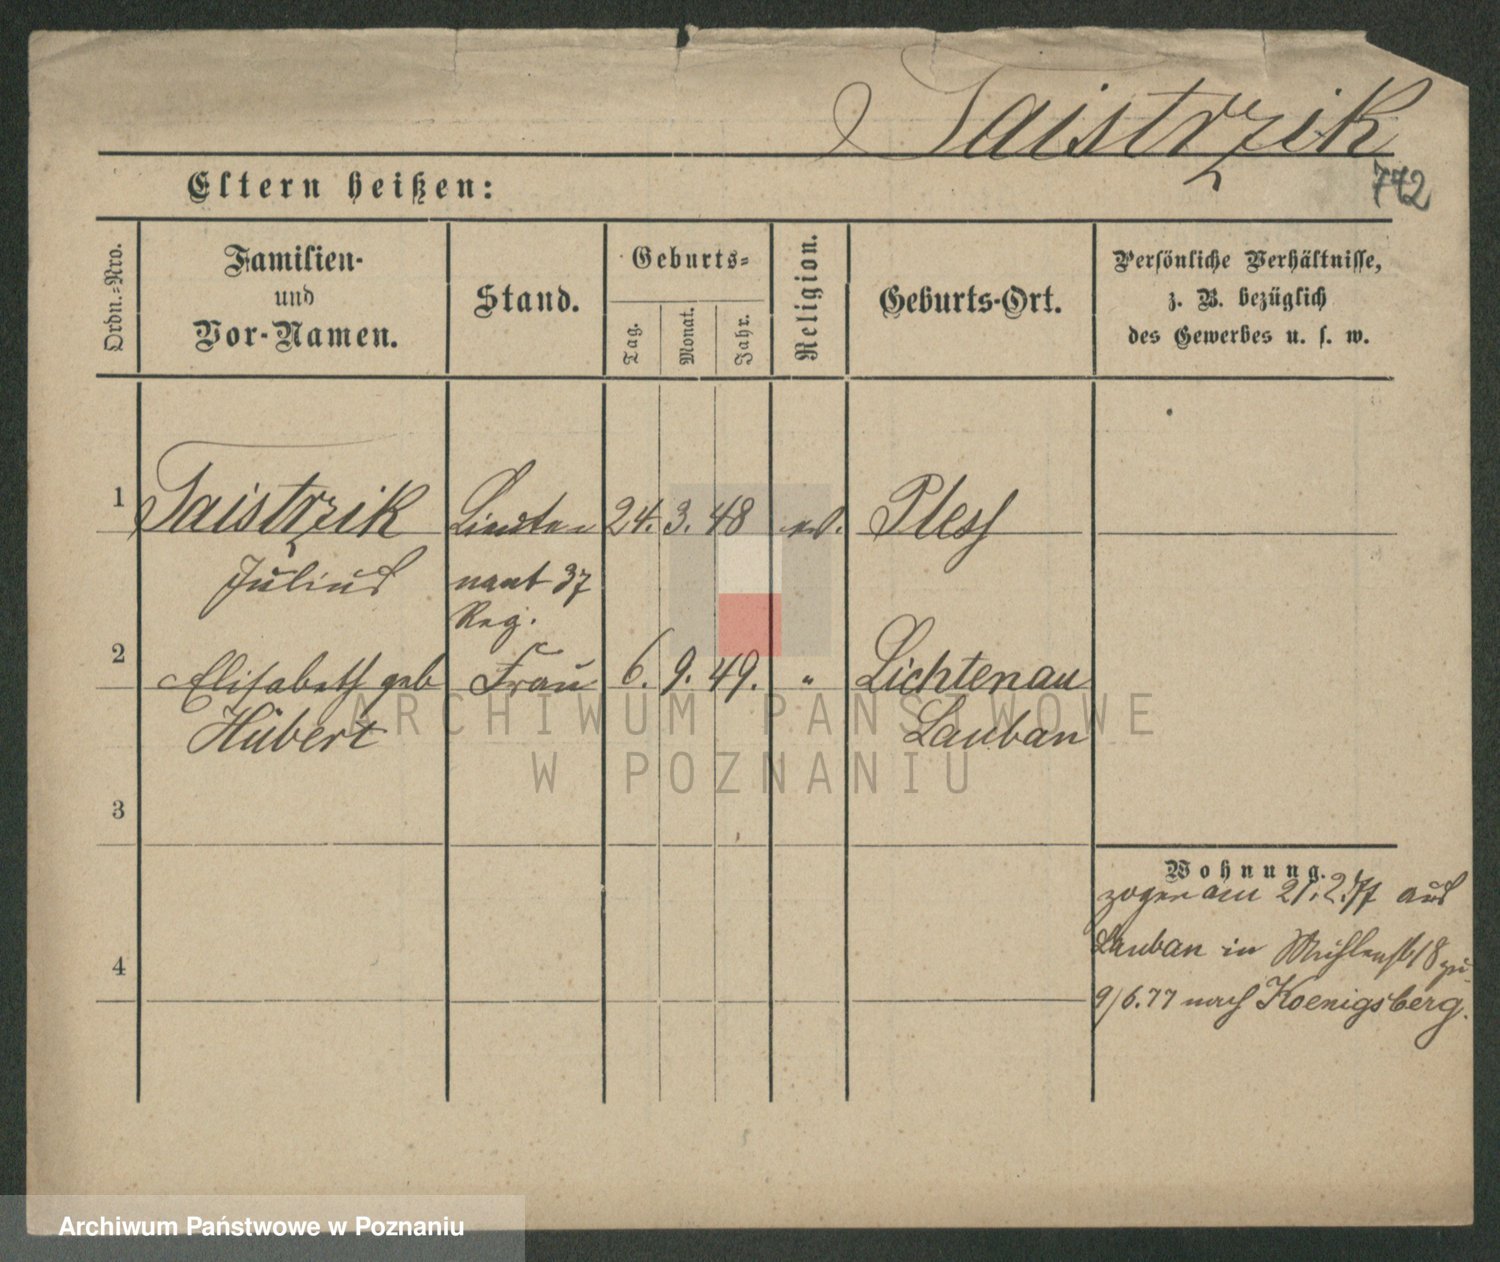 Taistrzik
772
Eltern heißen:
Ordn.-Nro.
Familien-
und
Vor-Namen.
Stand.
Geburts-
Tag.
Monat.
Jahr.
Religion.
Geburts-Ort.
Persönliche Verhältnisse,
z. B. bezüglich
des Gewerbes u. s. w.
1 Taistrzik Lieute 24. 3. 48 ev. Pless
Julius nant 37
Reg.
2 Elisabeth geb Frau 6. 9. 49. " Lichtenau
Hübert Lauban
3
4
Wohnung.
zogen am 21.2.77 aus
Lauban in Mühlenst 18 zu
9/6.77 nach Koenigsberg.
ARCHIWUM PAŃSTWOWE
W POZNANIU
Archiwum Państwowe w Poznaniu